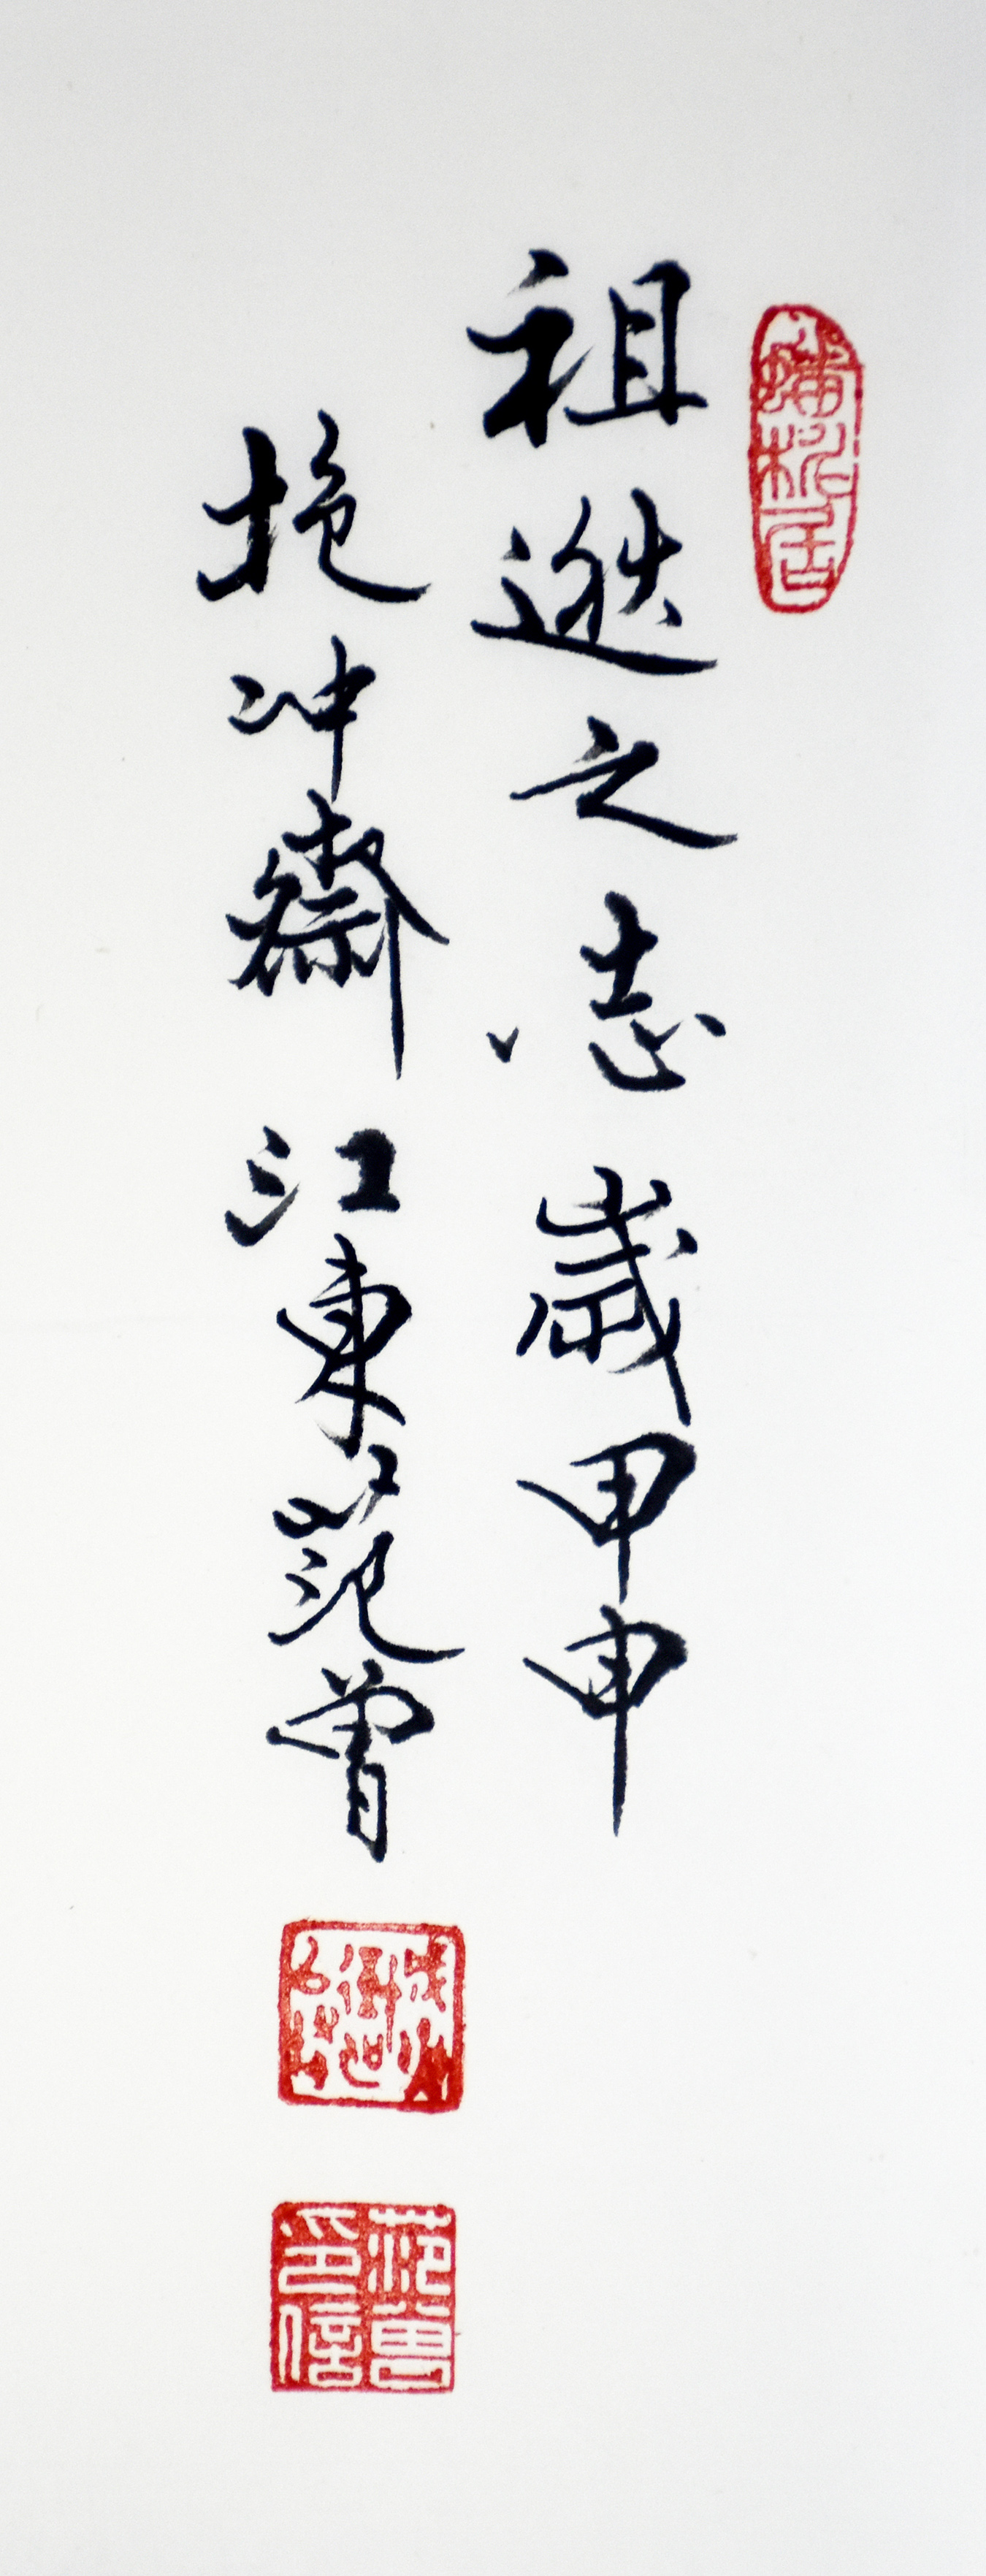 祖逖之志 歲甲申
抱冲齋 江東范曾
范曾印信